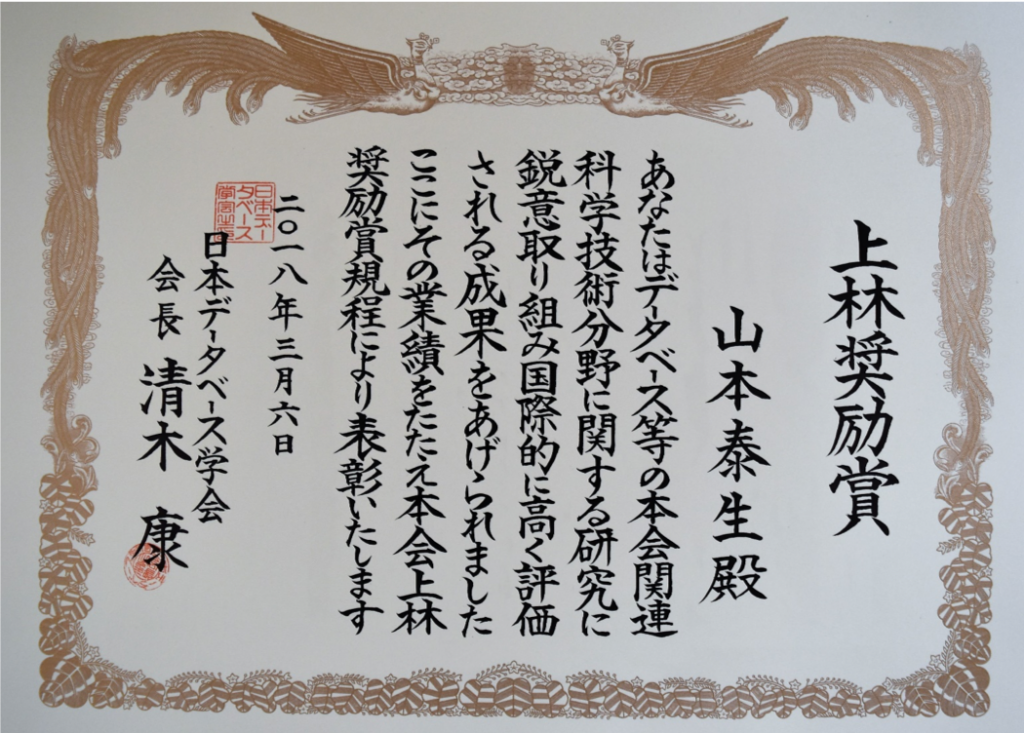 上林奨励賞
山本泰生殿
あなたはデータベース等の本会関連
科学技術分野に関する研究に
鋭意取り組み国際的に高く評価
される成果をあげられました
ここにその業績をたたえ本会上林
奨励賞規程により表彰いたします
二〇一八年三月六日
日本データベース学会
会長 清木 康
日本デー
タベース